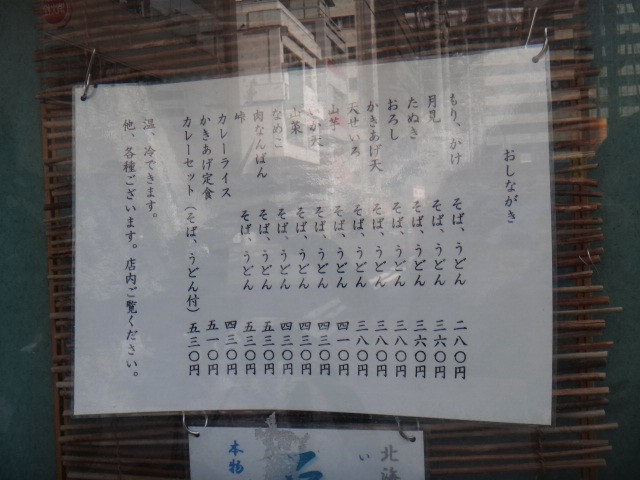 おしながき
もり、かけ そば、うどん 二八〇円
月見 そば、うどん 三六〇円
たぬき そば、うどん 三六〇円
おろし そば、うどん 三八〇円
かきあげ天 そば、うどん 三八〇円
天せいろ そば、うどん 三八〇円
山芋 そば、うどん 四一〇円
か天 そば、うどん 四三〇円
山菜 そば、うどん 四三〇円
なめこ そば、うどん 四三〇円
肉なんばん そば、うどん 五三〇円
峠 そば、うどん 五三〇円
カレーライス 四三〇円
かきあげ定食 五一〇円
カレーセット（そば、うどん付） 五三〇円
温、冷できます。
他、各種ございます。店内ご覧ください。
北海
い
本物